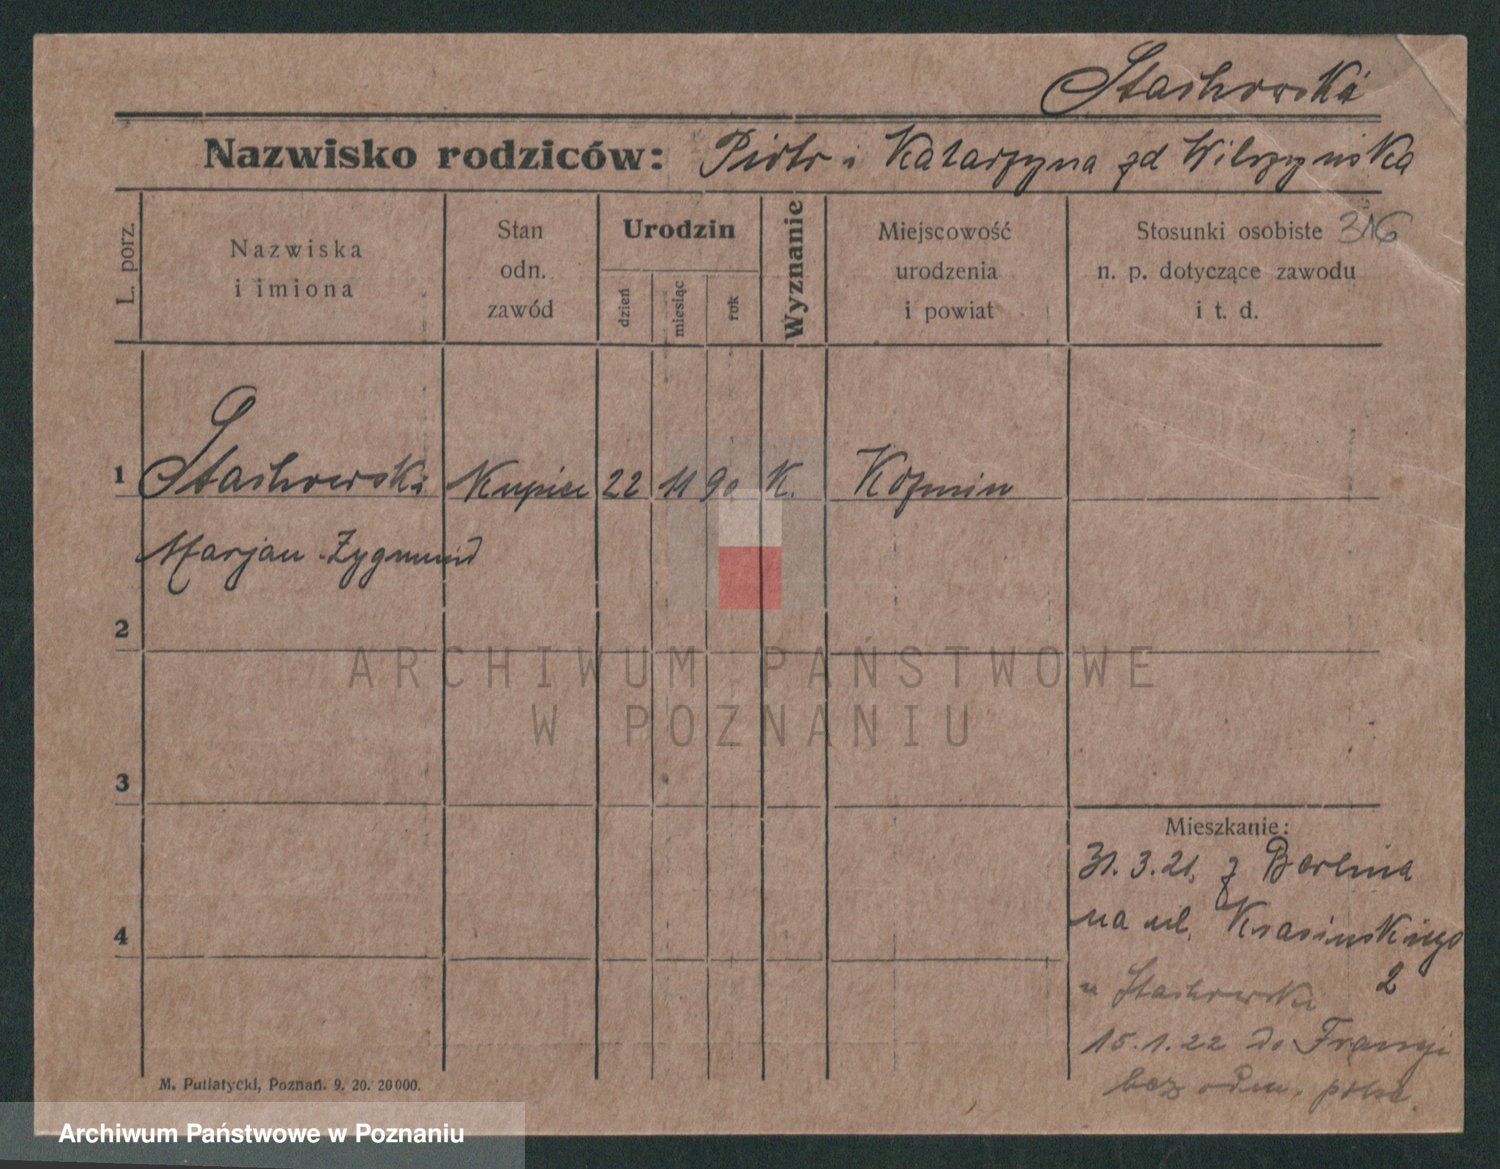 Stachowski
Nazwisko rodziców: Piotr i Katarzyna zd Wilczyńska
L. porz.
Nazwiska
i imiona
Stan
odn.
zawód
Urodzin
dzień
miesiąc
rok
Wyznanie
Miejscowość
urodzenia
i powiat
Stosunki osobiste 316
n. p. dotyczące zawodu
i t. d.
1 Stachowski Kupiec 22 11 90 K. Koźmin
Marjan Zygmund
2
ARCHIWUM PAŃSTWOWE
W POZNANIU
3
Mieszkanie:
31.3.21. z Berlina
na ul. Krasińskiego
4
2
u Stachowski
15.1.22 do Francji
bez odm.
M. Putiatycki, Poznań. 9. 20. 20000.
Archiwum Państwowe w Poznaniu